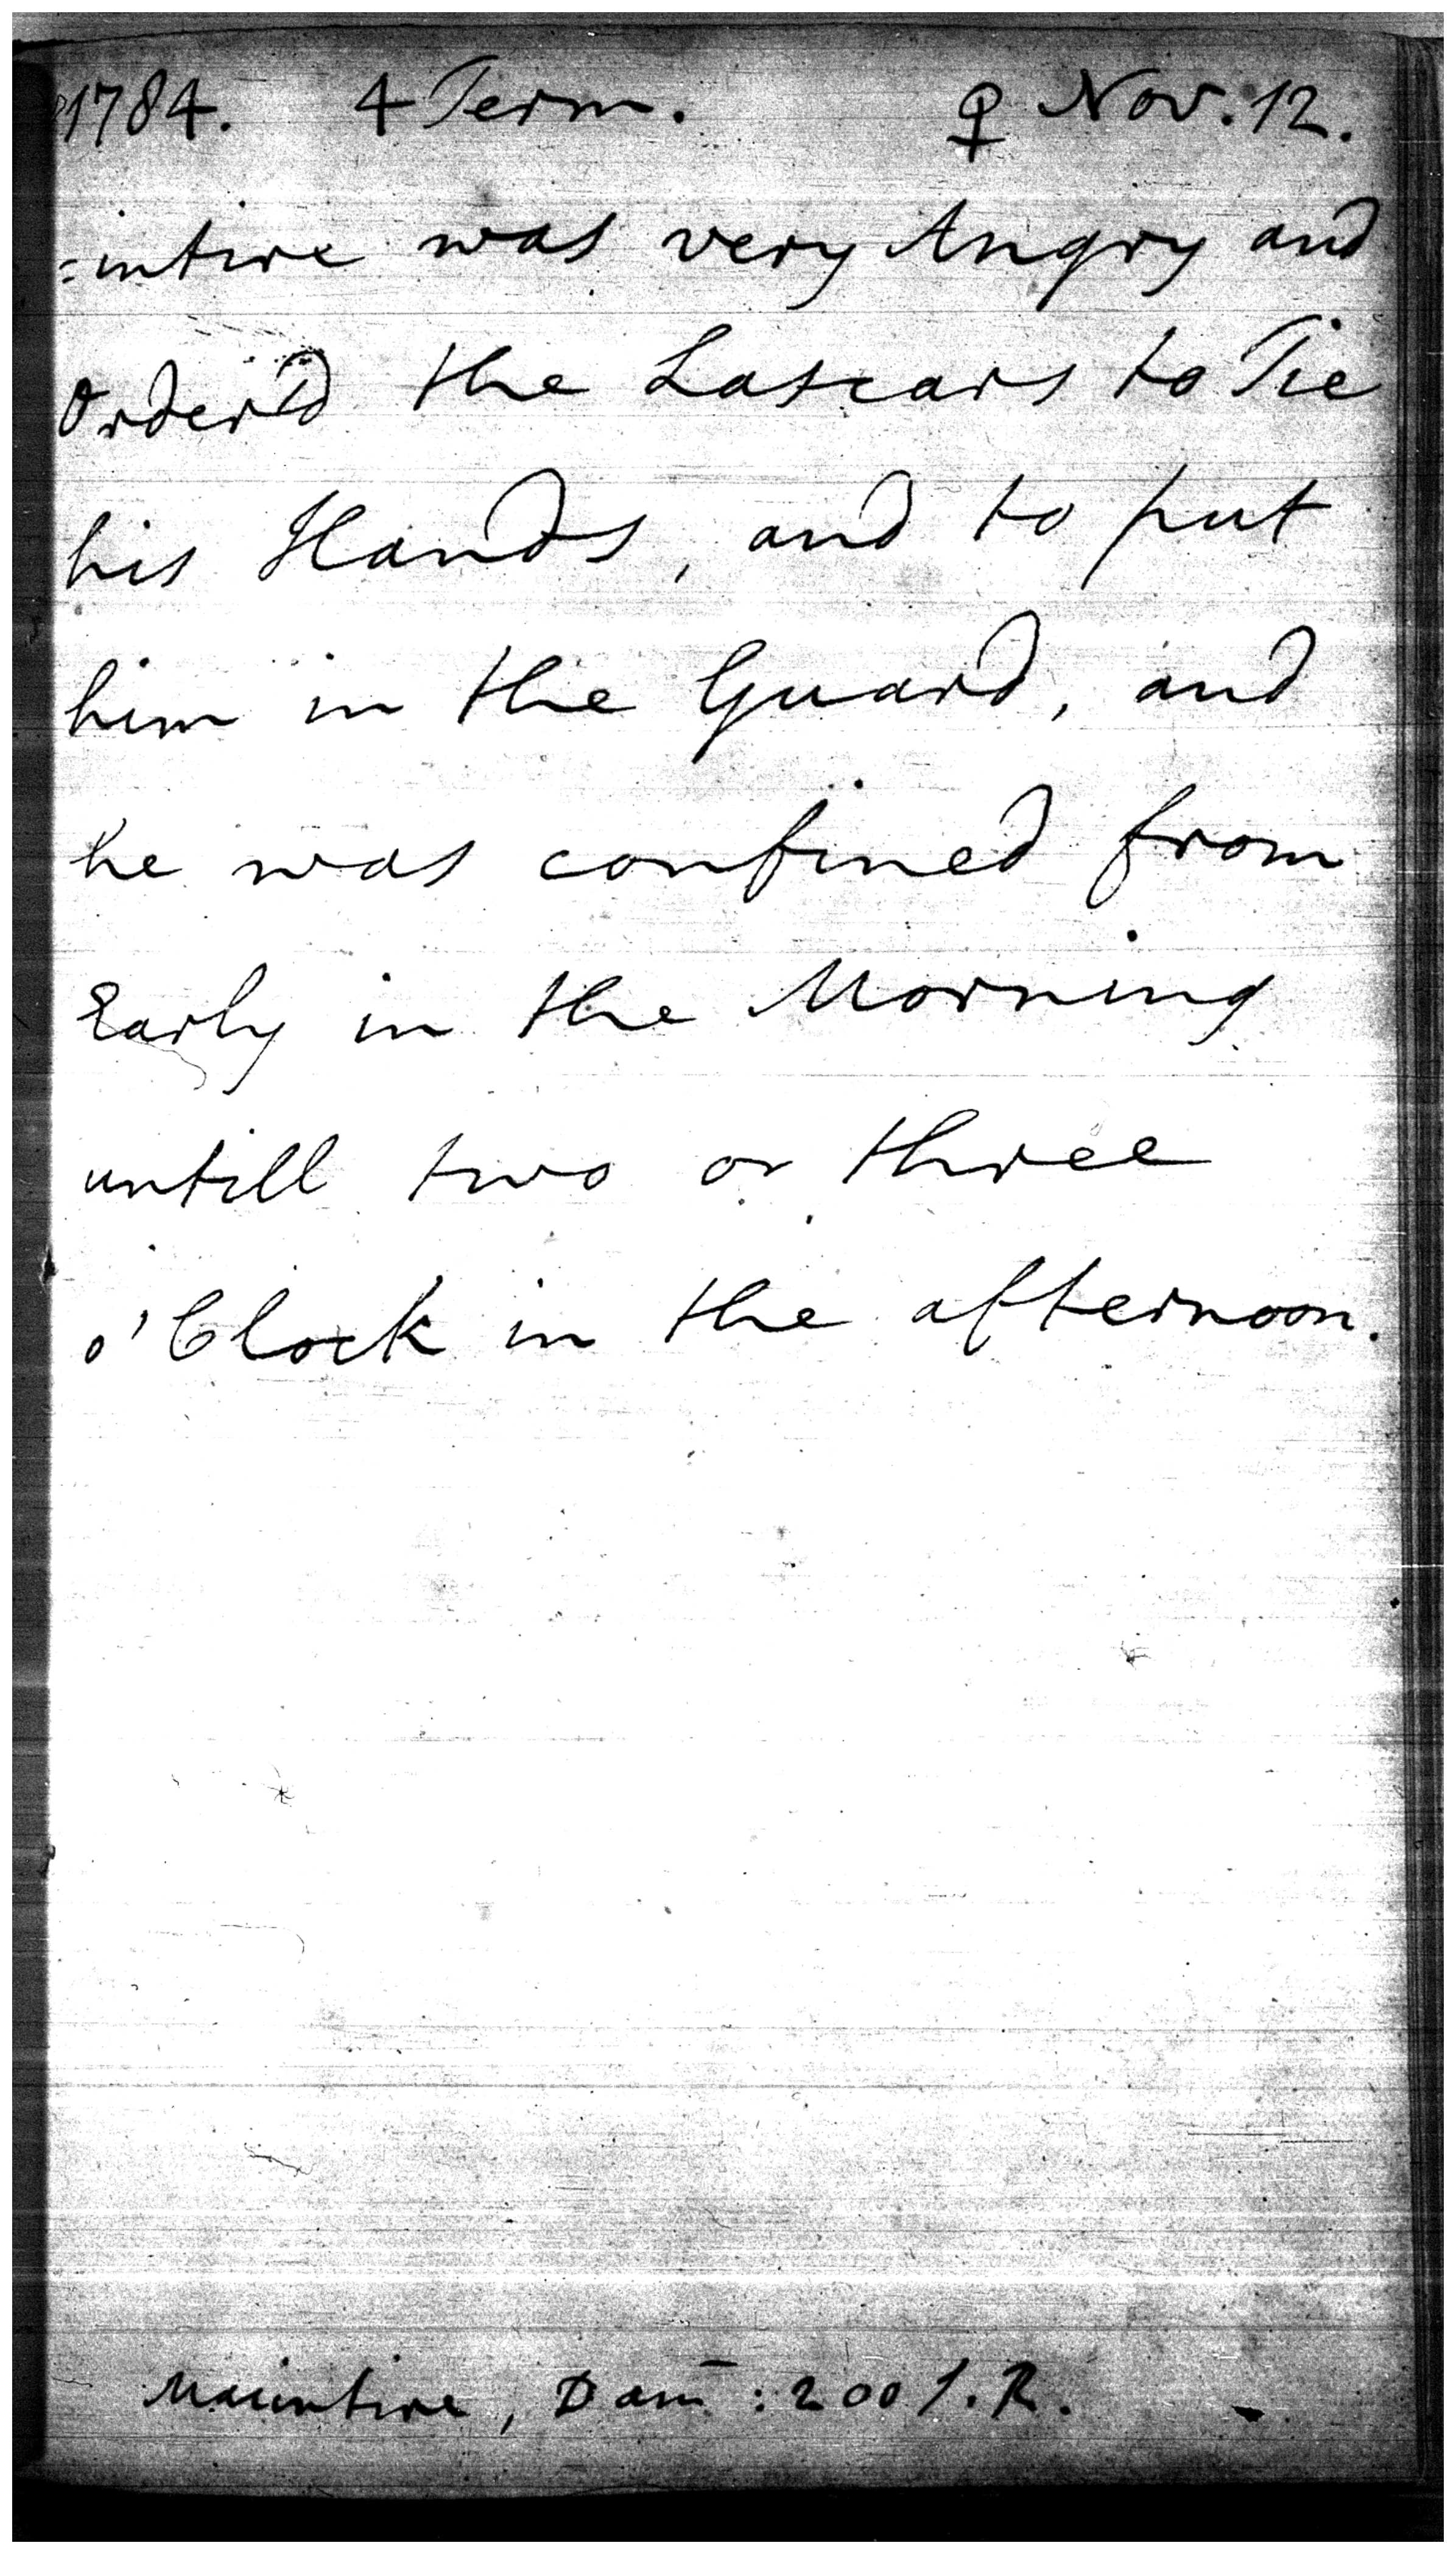 1784. 4 Term. ♀ Nov. 12.
=intire was very Angry and
Order'd the Lascars to Tie
his Hands, and to put
him in the Guard, and
he was confined from
Early in the Morning
untill two or three
o'Clock in the afternoon.
Macintire, Dam̄: 200 S.R.